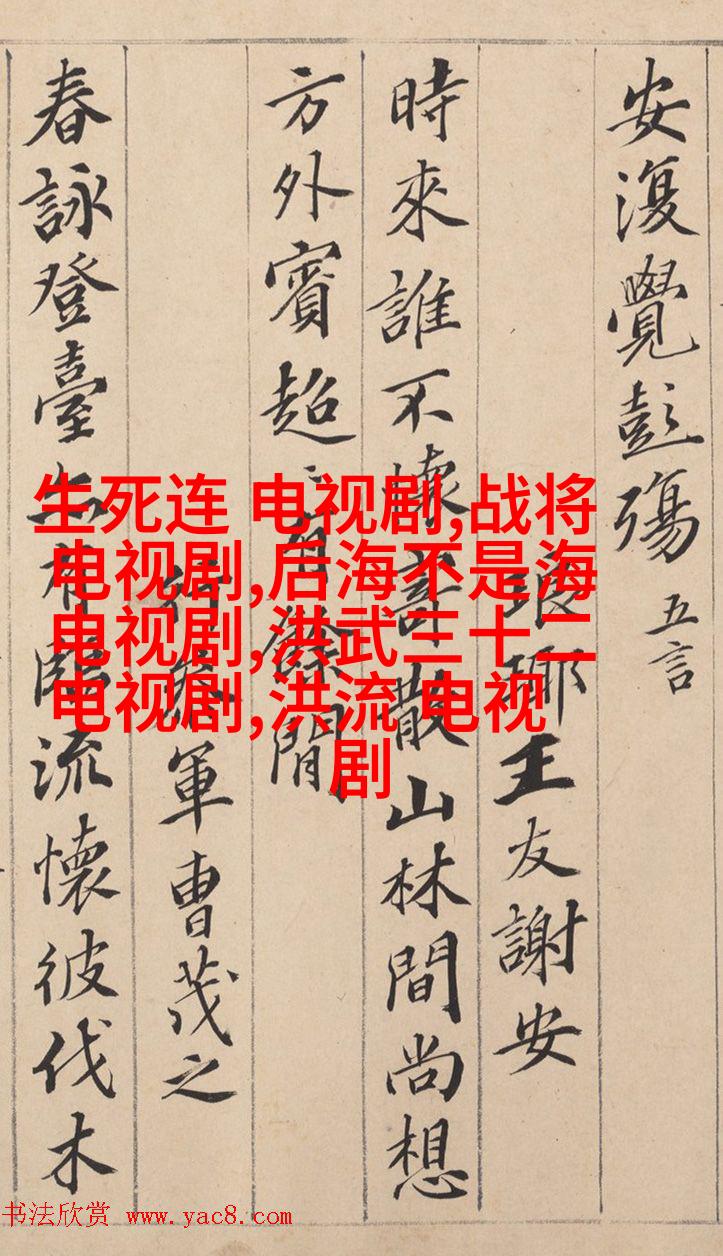 安復覺彭殤 五言
琅琊王友謝安
時來誰不懷寄散山林間尚想
方外賓超〻有餘閒
行參軍曹茂之
春詠登臺亦有臨流懷彼伐木
生死连 电视剧,战将
电视剧,后海不是海
电视剧,洪武三十二
电视剧,洪流 电视
剧
书法欣赏 www.yac8.com